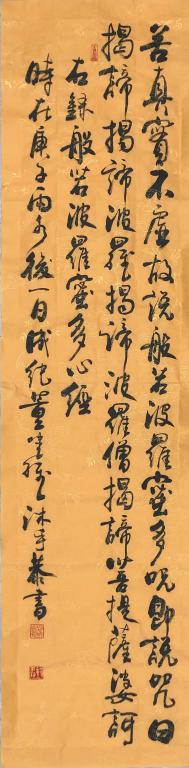 苦真實不虛故說般若波羅蜜多呪即說咒曰
揭諦揭諦波羅揭諦波羅僧揭諦菩提薩婆訶
右錄般若波羅蜜多心經
時在庚子雨水後一日成紀董沐手恭書